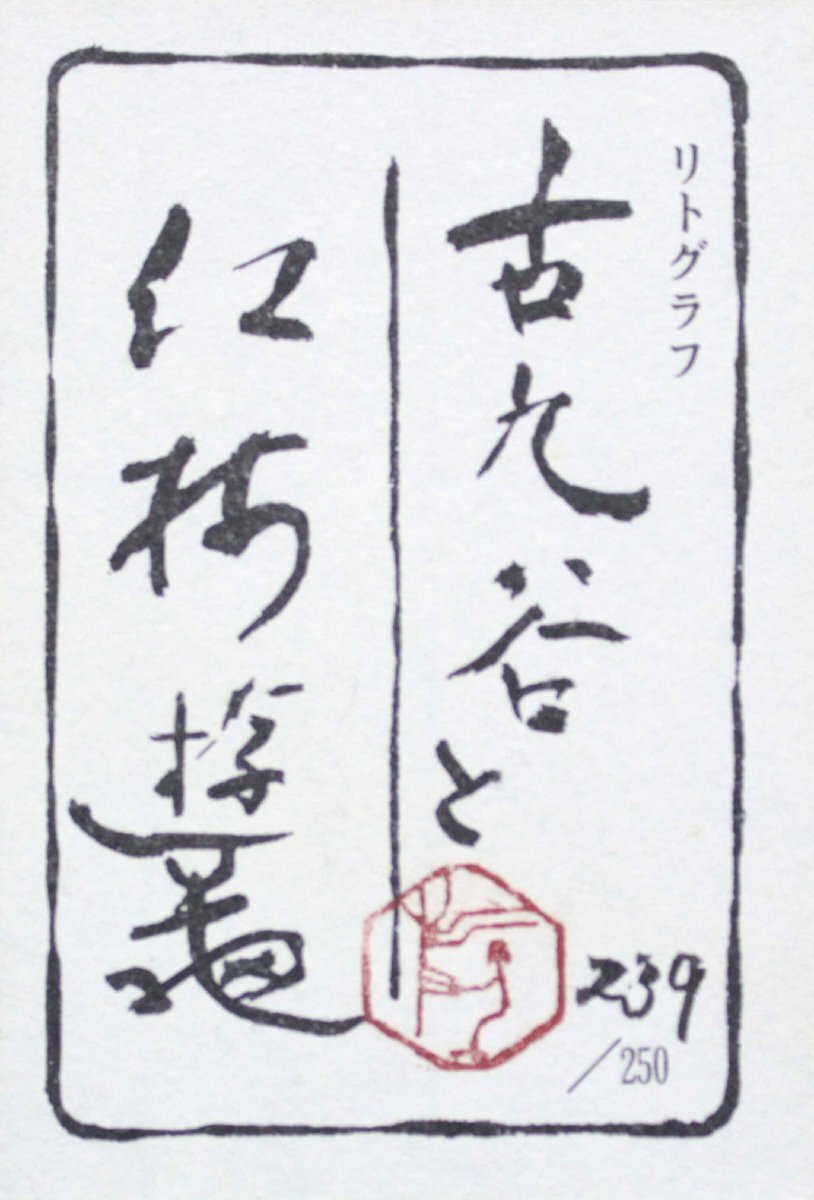 リトグラフ
古九谷と
紅梅
遊亀
239
/250